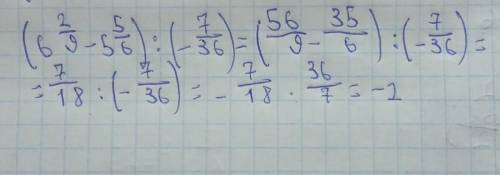 (6 2/9 - 5 5/6) : (- 7/36) = (56/9 - 35/6) : (- 7/36) =
= 7/18 : (- 7/36) = - 7/18 · 36/7 = -2